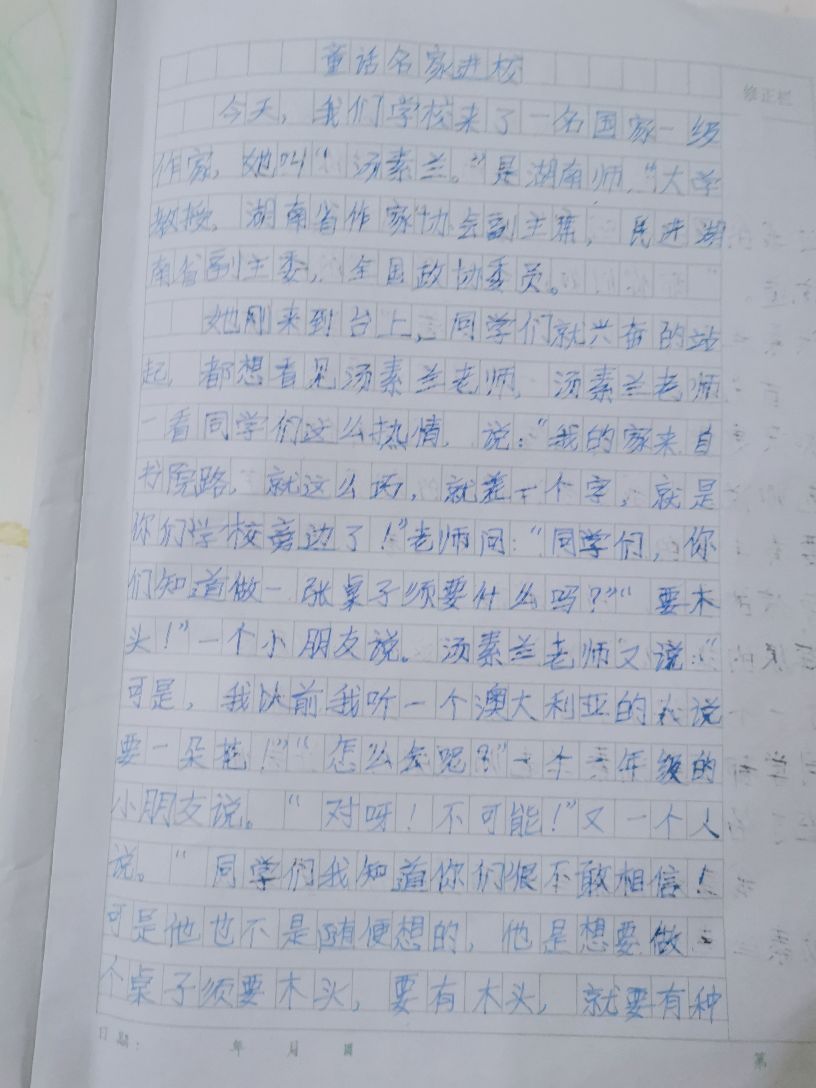 童话名家进校
修正栏
今天，我们学校来了一名国家一级
作家，她叫“汤素兰。”是湖南师“大学
教授，湖南省作家协会副主席，民进湖
南省副主委，全国政协委员。
她刚来到台上，同学们就兴奋的站
起，都想看见汤素兰老师，汤素兰老师
一看同学们这么热情，说：“我的家来自
书院路，就这么近，就差一个字，就是
你们学校旁边了！”老师问：“同学们，你
们知道做一张桌子须要什么吗？”“要木
头！”一个小朋友说。汤素兰老师又说：“
可是，我以前我听一个澳大利亚的人说
要一朵花！”“怎么会呢？”一个年级的
小朋友说。“对呀！不可能！”又一个人
说。“同学们我知道你们很不敢相信！
可是他也不是随便想的，他是想要做一
个桌子须要木头，要有木头，就要有种
日期： 年 月 日
第